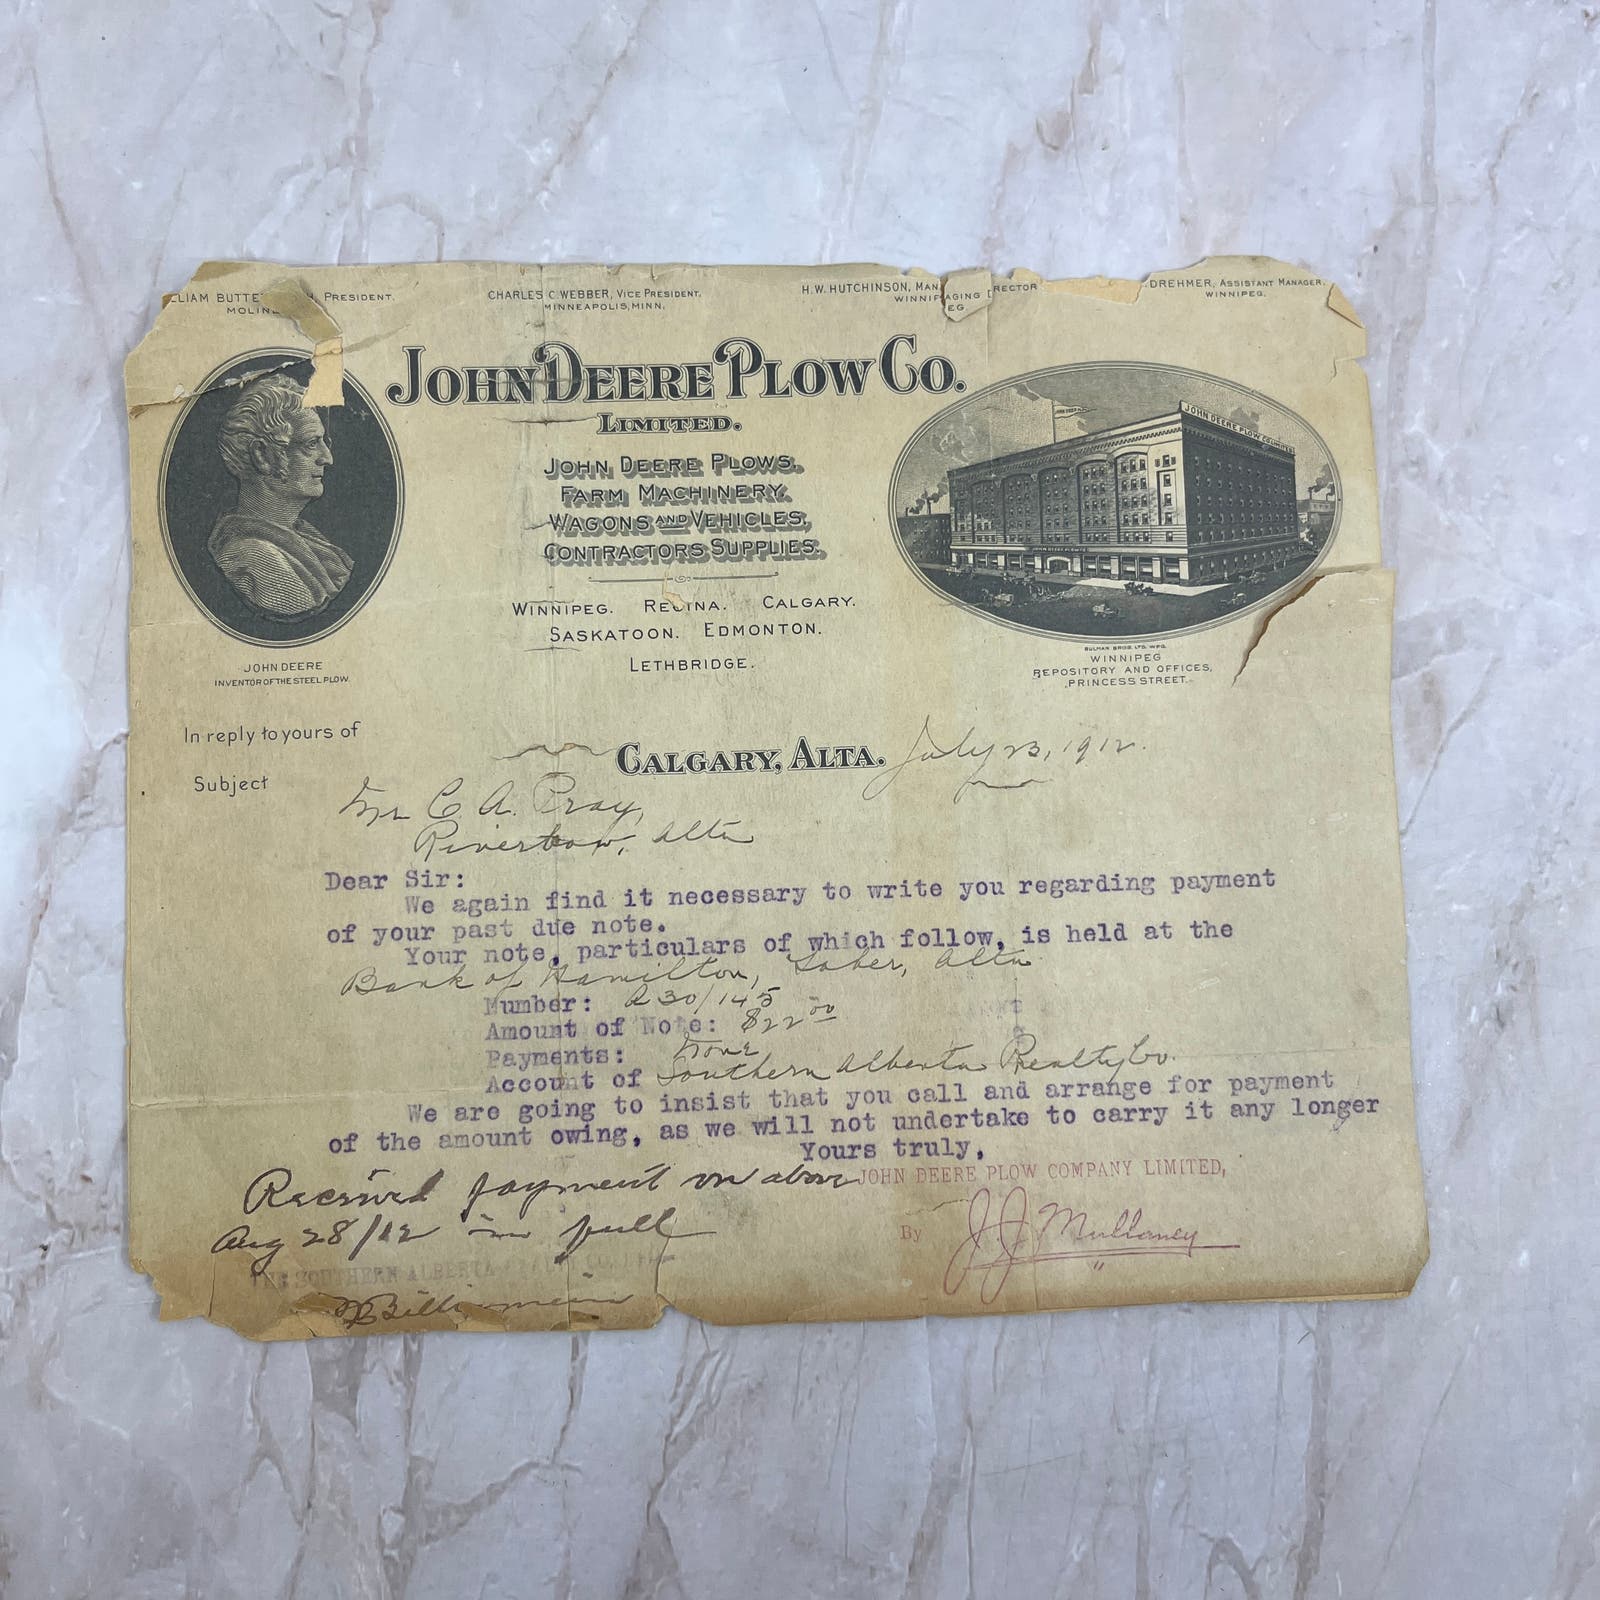 LLIAM BUTTE H, PRESIDENT.
MOLINE
CHARLES C. WEBBER, VICE PRESIDENT.
MINNEAPOLIS, MINN.
H.W. HUTCHINSON, MANAGING DIRECTOR
WINNIPEG.
DREHMER, ASSISTANT MANAGER.
WINNIPEG.
JOHN DEERE PLOW CO.
LIMITED.
JOHN DEERE PLOWS,
FARM MACHINERY,
WAGONS AND VEHICLES,
CONTRACTORS SUPPLIES.
WINNIPEG. REGINA. CALGARY.
SASKATOON. EDMONTON.
LETHBRIDGE.
JOHN DEERE
INVENTOR OF THE STEEL PLOW.
JOHN DEERE PLOW CO. LIMITED
JOHN DEERE PLOW CO
BULMAN BROS. LTD. WPG.
WINNIPEG
REPOSITORY AND OFFICES,
PRINCESS STREET.
In reply to yours of
Subject
CALGARY, ALTA. July 23, 1912.
Mr C. A. Pray,
Riverbow, Alta
Dear Sir:
We again find it necessary to write you regarding payment
of your past due note.
Your note, particulars of which follow, is held at the
Bank of Hamilton, Taber, Alta
Number: A30/145
Amount of Note: $22.00
Payments: None
Account of Southern Alberta Realty Co.
We are going to insist that you call and arrange for payment
of the amount owing, as we will not undertake to carry it any longer
Yours truly,
JOHN DEERE PLOW COMPANY LIMITED,
By J. J. Mulloney
"
Received payment on above
Aug 28/12 in full
THE SOUTHERN ALBERTA